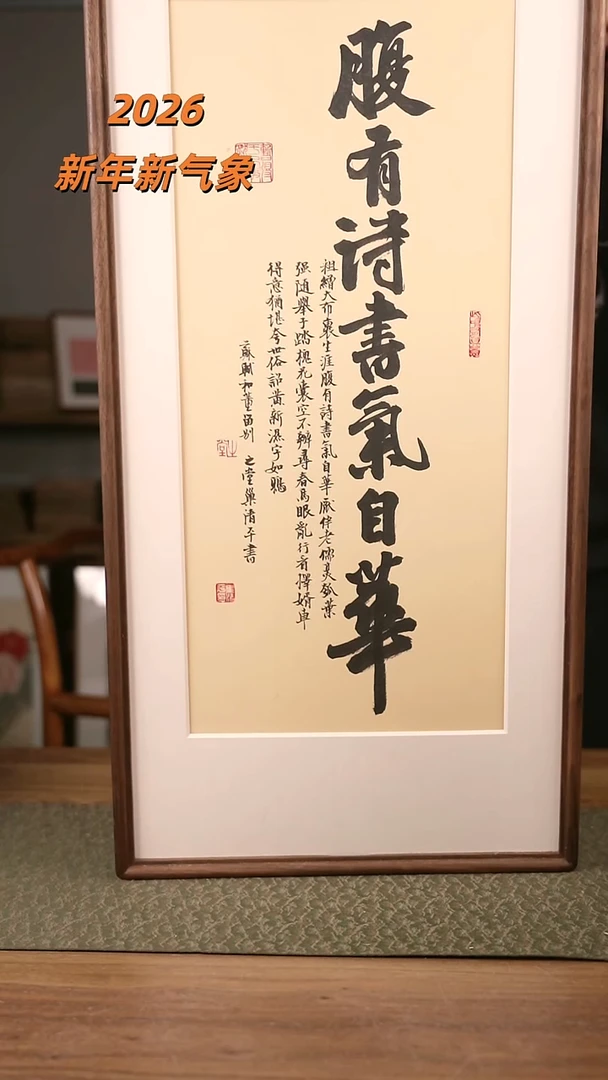 2026
新年新气象
腹有詩書氣自華
粗繒大布裹生涯腹有詩書氣自華厭伴老儒烹瓠葉
强随舉子踏槐花囊空不辦尋春馬眼亂行看擇婿車
得意猶堪夸世俗詔黄新濕字如鴉
蘇軾和董留别 之堂巢清平書